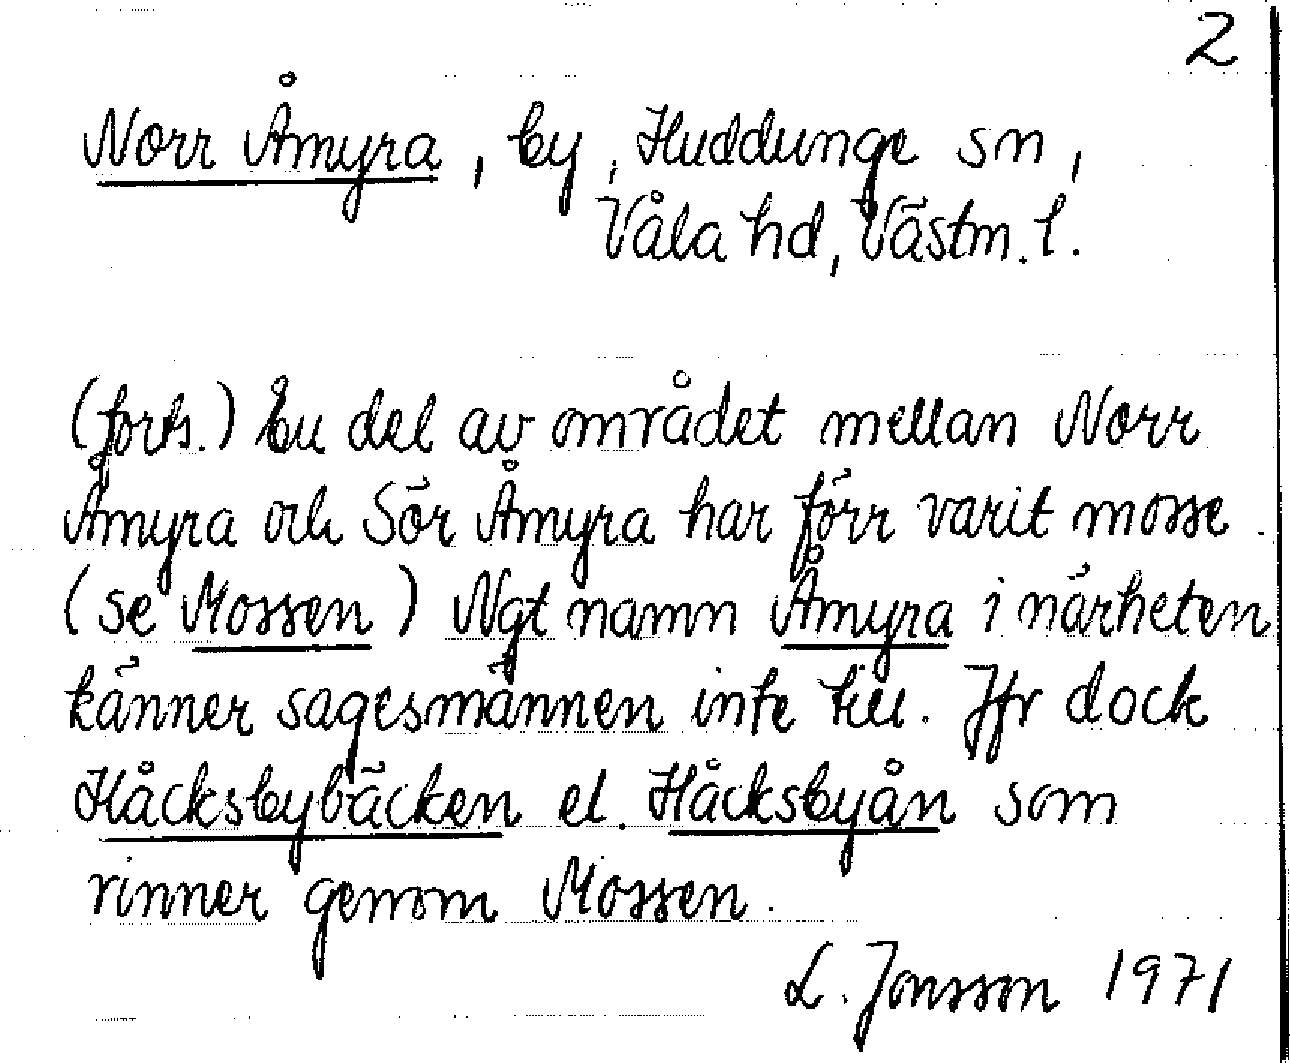 2
Norr Åmyra, by, Huddunge sn,
Våla hd, Västm. l.
(forts.) En del av området mellan Norr
Åmyra och Sör Åmyra har förr varit mosse.
(se Mossen) Ngt namn Åmyra i närheten
känner sagesmännen inte till. Jfr dock
Håcksbybäcken el. Håcksbyån som
rinner genom Mossen.
L. Jonsson 1971